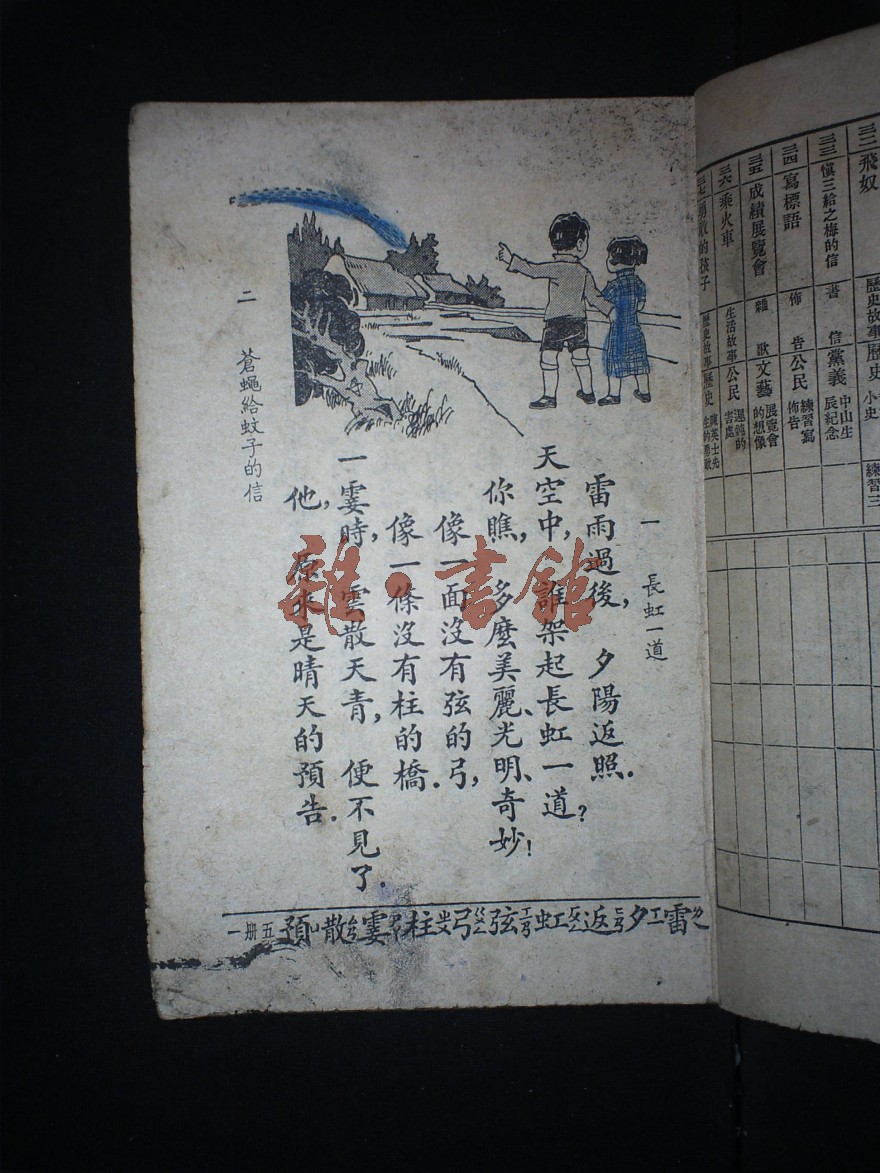 一　長虹一道
雷雨過後，夕陽返照．
天空中，誰架起長虹一道？
你瞧，多麼美麗、光明、奇妙！
像一面沒有弦的弓，
像一條沒有柱的橋．
一霎時，雲散天青，便不見了．
他，原來是晴天的預告．
二　蒼蠅給蚊子的信
雷夕返虹弦弓柱霎散預
五册一
雜·書館
三二飛奴
歷史故事 歷史
練習三
三三慎三給之梅的信
書信 黨義
中山生辰紀念
三四寫標語
佈告 公民
練習寫佈告
三五成績展覽會
雜歌 文藝
展覽會的想像
三六乘火車
生活故事 公民
遲鈍的害處
三七勇敢的孩子
歷史故事 歷史